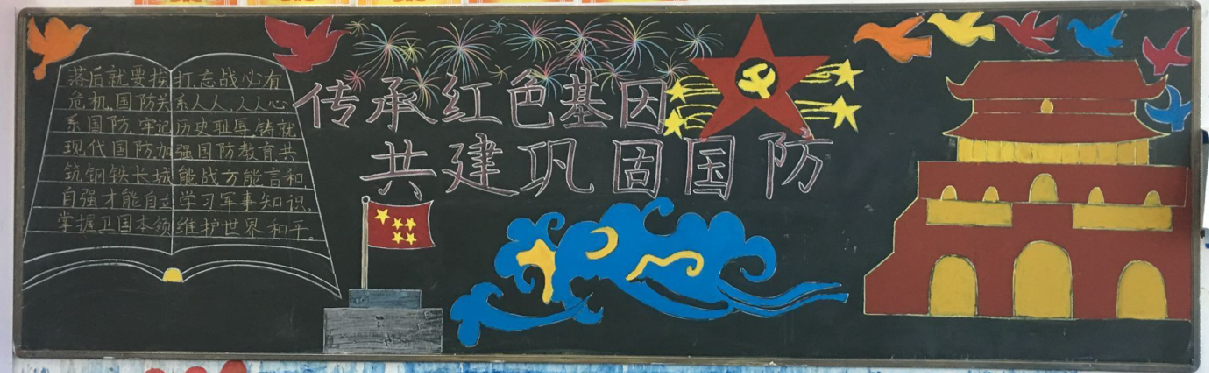 落后就要挨打忘战必有
危机,国防关系人人,人人心
系国防,牢记历史耻辱铸就
现代国防加强国防教育共
筑钢铁长城能战方能言和,
自强才能自立学习军事知识,
掌握卫国本领维护世界和平。
传承红色基因
共建巩固国防